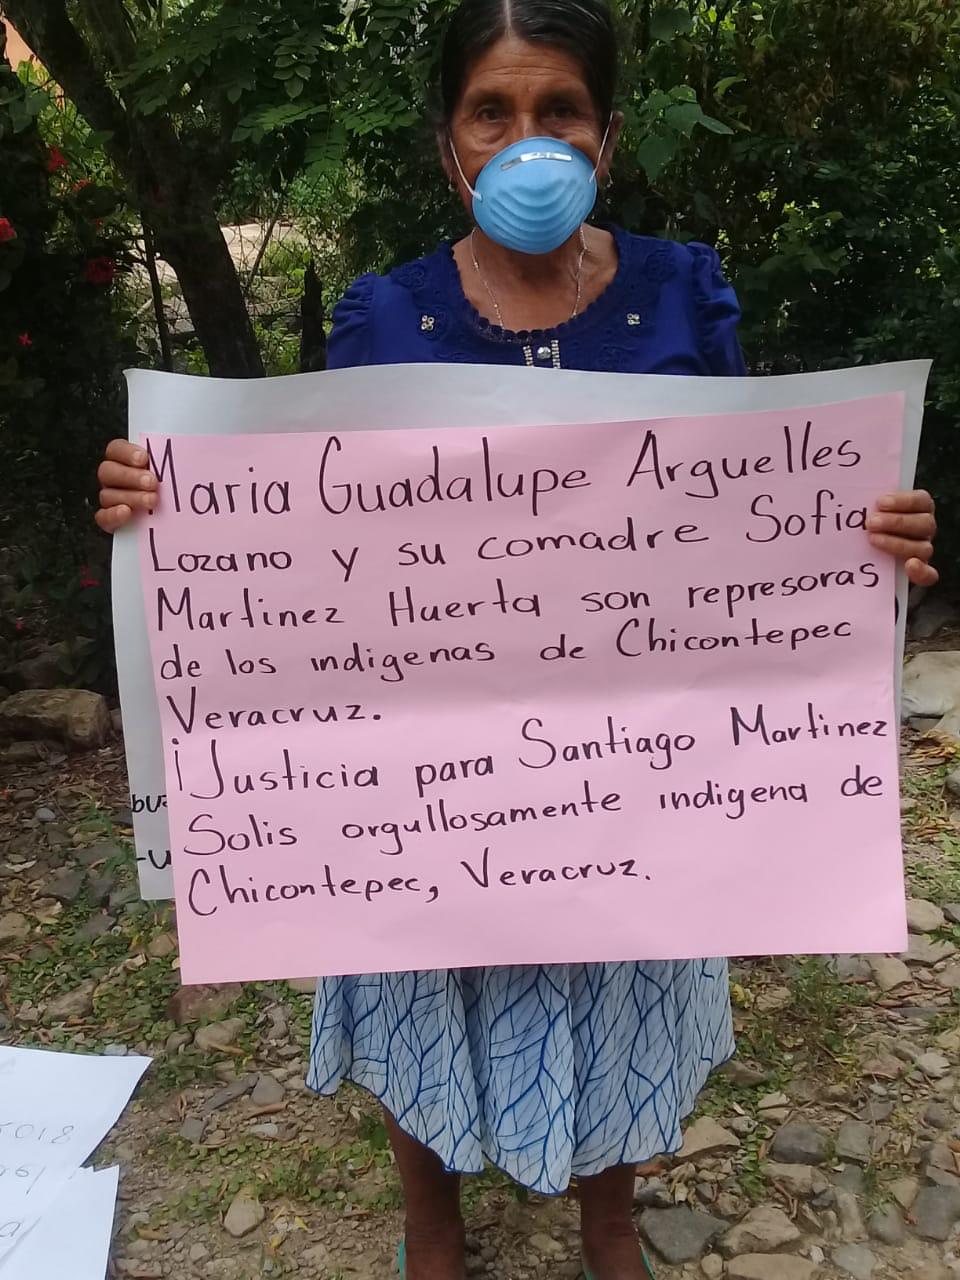 Maria Guadalupe Arguelles
Lozano y su comadre Sofia
Martinez Huerta son represoras
de los indigenas de Chicontepec
Veracruz.
¡Justicia para Santiago Martinez
Solis orgullosamente indigena de
Chicontepec, Veracruz.
2018